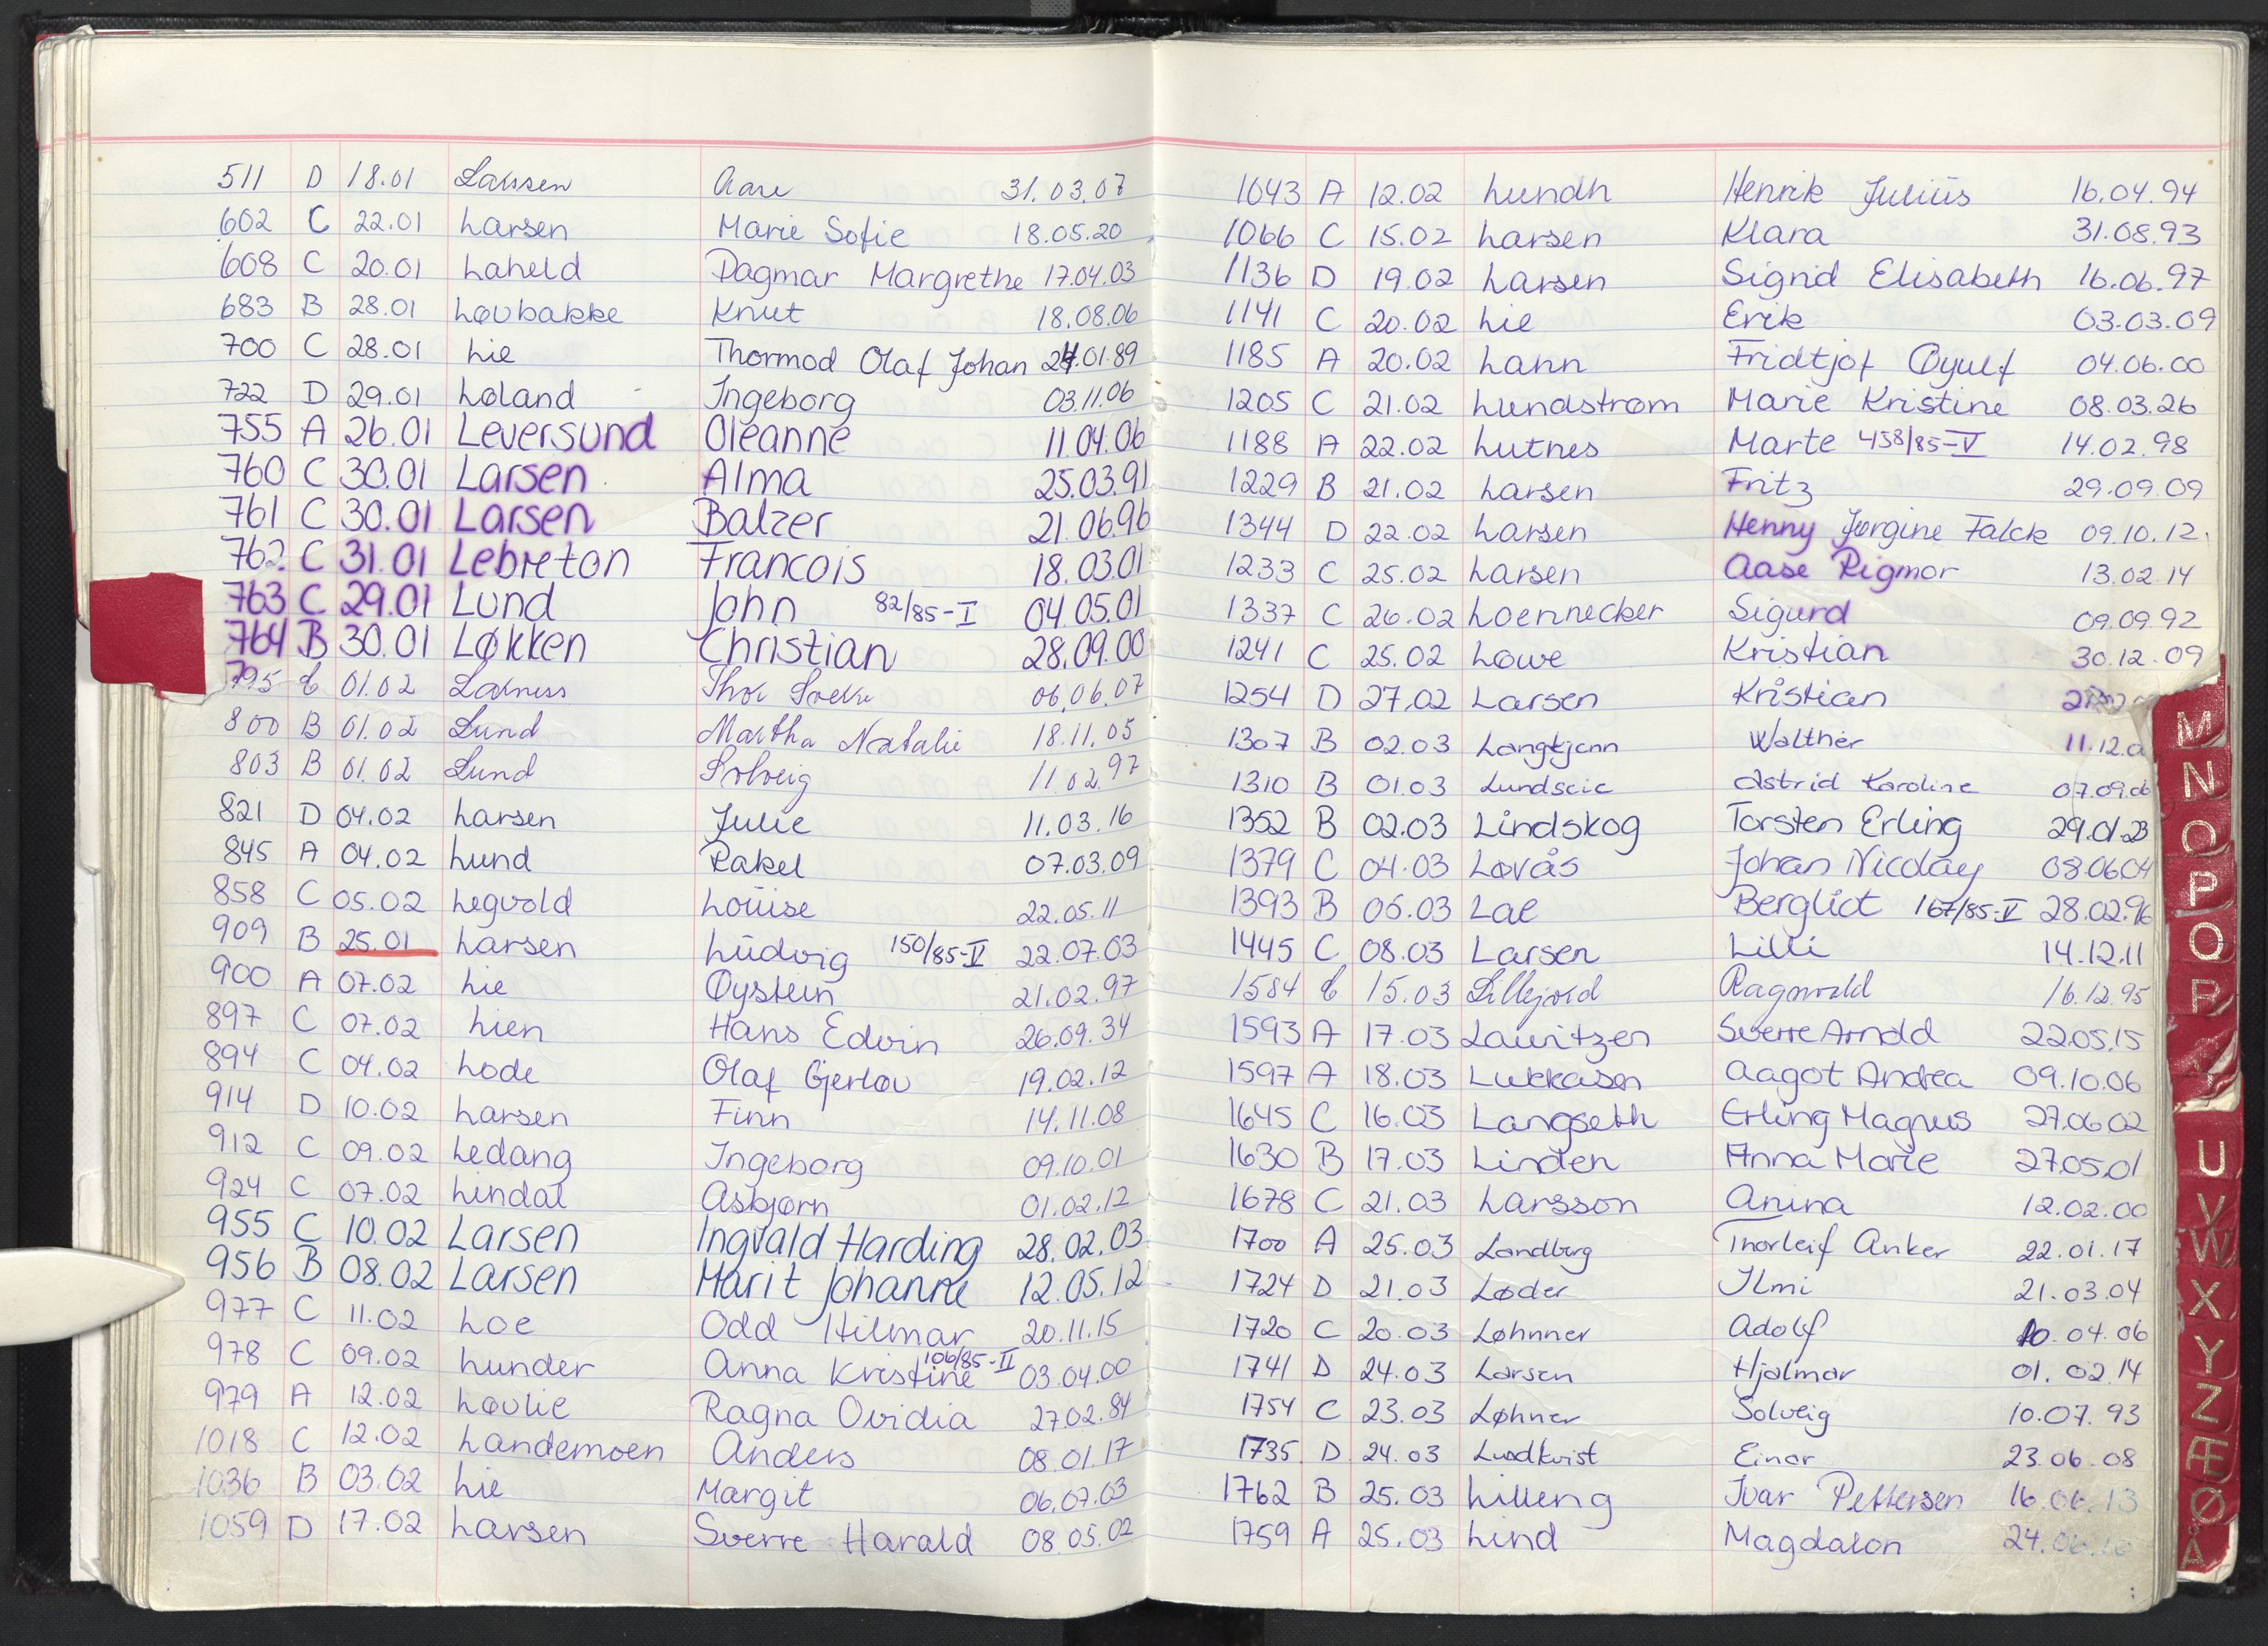 511 D 18.01 Larssen Aare 31.03.07
602 C 22.01 Larsen Marie Sofie 18.05.20
608 C 20.01 Laheld Dagmar Margrethe 17.04.03
683 B 28.01 Løvbakke Knut 18.08.06
700 C 28.01 Lie Thormod Olaf Johan 24.01.89
722 D 29.01 Løland Ingeborg 03.11.06
755 A 26.01 Leversund Oleanne 11.04.06
760 C 30.01 Larsen Alma 25.03.91
761 C 30.01 Larsen Balzer 21.06.96
762 C 31.01 Lebreton Francois 18.03.01
763 C 29.01 Lund John 82/85-I 04.05.01
764 B 30.01 Løkken Christian 28.09.00
795 C 01.02 Thor 06.06.07
800 B 01.02 Lund Martha Natalie 18.11.05
803 B 01.02 Lund Solveig 11.02.97
821 D 04.02 Larsen Julie 11.03.16
845 A 04.02 Lund Rakel 07.03.09
858 C 05.02 Legvold Louise 22.05.11
909 B 25.01 Larsen Ludvig 150/85-V 22.07.03
900 A 07.02 Lie Øystein 21.02.97
897 C 07.02 Lien Hans Edvin 26.09.34
894 C 04.02 Lode Olaf Gjerløv 19.02.12
914 D 10.02 Larsen Finn 14.11.08
912 C 09.02 Ledang Ingeborg 09.10.01
924 C 07.02 Lindal Asbjørn 01.02.12
955 C 10.02 Larsen Ingvald Harding 28.02.03
956 B 08.02 Larsen Marit Johanne 12.05.12
977 C 11.02 Loe Odd Hilmar 20.11.15
978 C 09.02 Lunder Anna Kristine 106/85-II 03.04.00
979 A 12.02 Løvlie Ragna Ovidia 27.02.84
1018 C 12.02 Landemoen Anders 08.01.17
1036 B 03.02 Lie Margit 06.07.03
1059 D 17.02 Larsen Sverre Harald 08.05.02
1043 A 12.02 Lundh Henrik Julius 16.04.94
1066 C 15.02 Larsen Klara 31.08.93
1136 D 19.02 Larsen Sigrid Elisabeth 16.06.97
1141 C 20.02 Lie Erik 03.03.09
1185 A 20.02 Lann Fridtjof Øyulf 04.06.00
1205 C 21.02 Lundstrøm Marie Kristine 08.03.26
1188 A 22.02 Lutnes Marte 458/85-V 14.02.98
1229 B 21.02 Larsen Fritz 29.09.09
1344 D 22.02 Larsen Henny Jørgine Falck 09.10.12.
1233 C 25.02 Larsen Aase Rigmor 13.02.14
1337 C 26.02 Loennecker Sigurd 09.09.92
1241 C 25.02 Løwe Kristian 30.12.09
1254 D 27.02 Larsen Kristian
1307 B 02.03 Langtjenn Walther 11.12.0
1310 B 01.03 Lundseie Astrid Karoline 07.09.06
1352 B 02.03 Lindskog Torsten Erling 29.01.23
1379 C 04.03 Løvås Johan Nicolay 08.06.04
1393 B 06.03 Lae Bergliot 167/85-V 28.02.96
1445 C 08.03 Larsen Lilli 14.12.11
1584 C 15.03 Lillejord Ragnvald 16.12.95
1593 A 17.03 Lauritzen Sverre Arnold 22.05.15
1597 A 18.03 Lukkasen Aagot Andrea 09.10.06
1645 C 16.03 Langseth Erling Magnus 27.06.02
1630 B 17.03 Linden Anna Marie 27.05.01
1678 C 21.03 Larsson Anina 12.02.00
1700 A 25.03 Landberg Thorleif Anker 22.01.17
1724 D 21.03 Løder Ilmi 21.03.04
1720 C 20.03 Løhnner Adolf 10.04.06
1741 D 24.03 Larsen Hjalmar 01.02.14
1754 C 23.03 Løhner Solveig 10.07.93
1735 D 24.03 Lundkvist Einar 23.06.08
1762 B 25.03 Lilleng Ivar Pettersen 16.06.13
1759 A 25.03 Lind Magdalon 24.06.
M
N
O
P
Q
R
U
V
W
X
Y
Z
Æ
Ø
Å